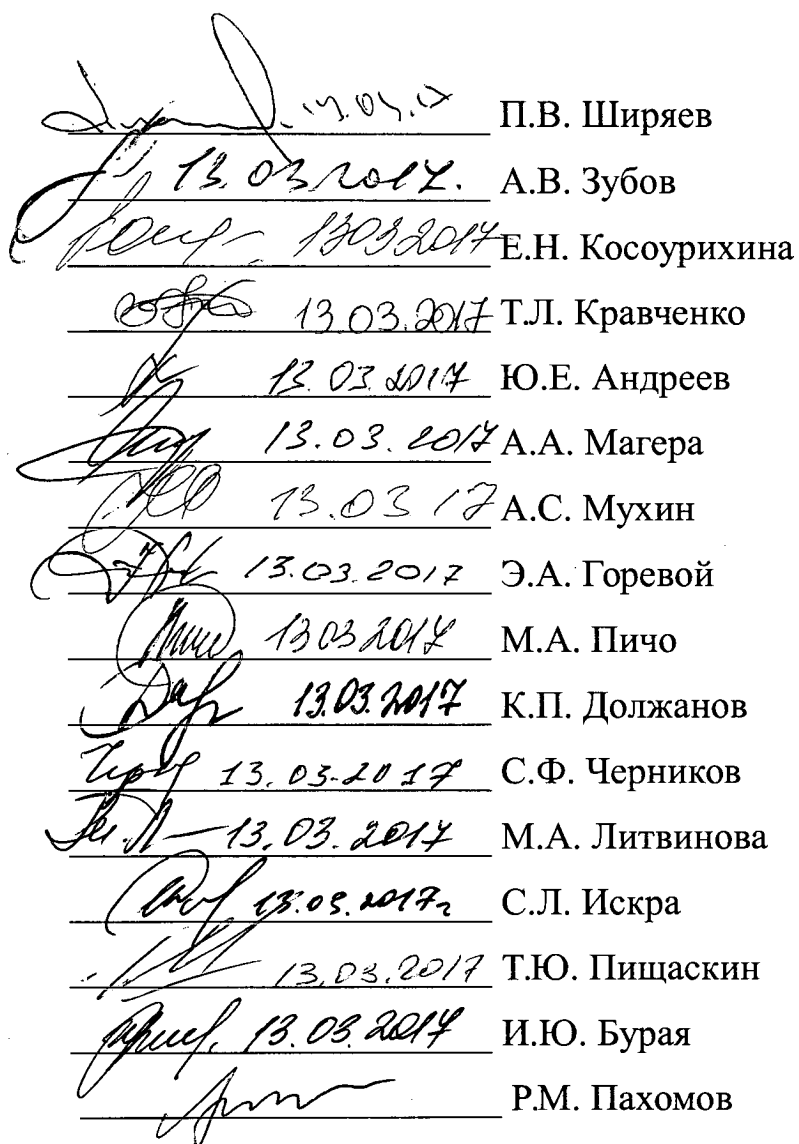 13.03.17 П.В. Ширяев
13.03.2017. А.В. Зубов
13032017 Е.Н. Косоурихина
13.03.2017 Т.Л. Кравченко
13.03.2017 Ю.Е. Андреев
13.03.2017 А.А. Магера
13.03 17 А.С. Мухин
13.03.2017 Э.А. Горевой
13032017 М.А. Пичо
13.03.2017 К.П. Должанов
13.03.2017 С.Ф. Черников
13.03.2017 М.А. Литвинова
13.03.2017г С.Л. Искра
13.03.2017 Т.Ю. Пищаскин
13.03.2017 И.Ю. Бурая
Р.М. Пахомов